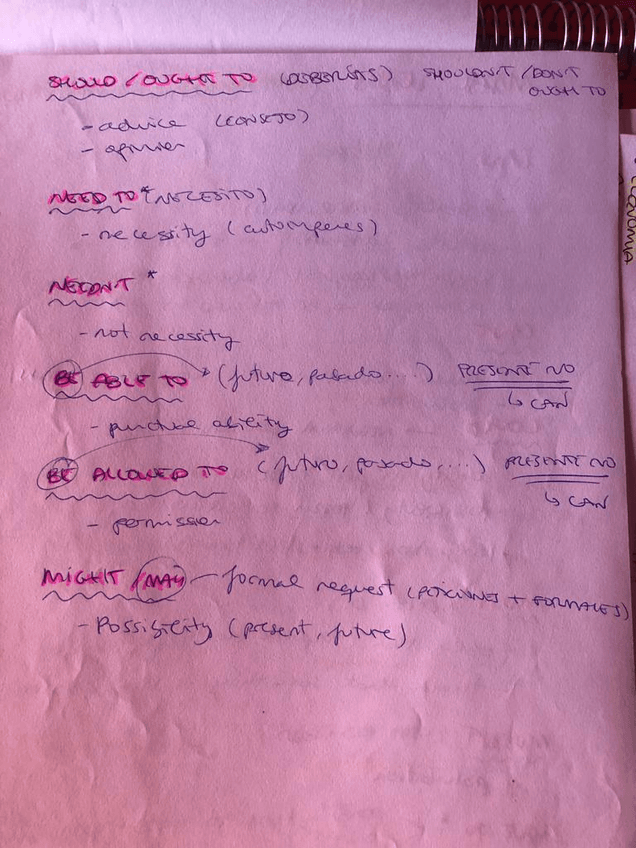 SHOULD / OUGHT TO (DEBERÍAS) SHOULDN'T / DON'T
OUGHT TO
- advice (CONSEJO)
- opinion
NEED TO * (NECESITO)
- necessity (autoimpones)
NEEDN'T *
- not necessity
BE ABLE TO (futuro, pasado...) PRESENTE NO
↳ CAN
- ability
BE ALLOWED TO (futuro, pasado,....) PRESENTE NO
↳ CAN
- permission
MIGHT / MAY - formal request (PETICIONES + FORMALES)
- Possibility (present, future)